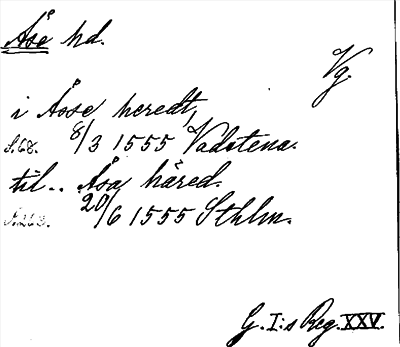 Åse hd.
Vg.
i Åsse heredt,
S.68. 8/3 1555 Vadstena.
til.. Åsa häred.
S.263. 20/6 1555 Sthlm.
G. I:s Reg. XXV.